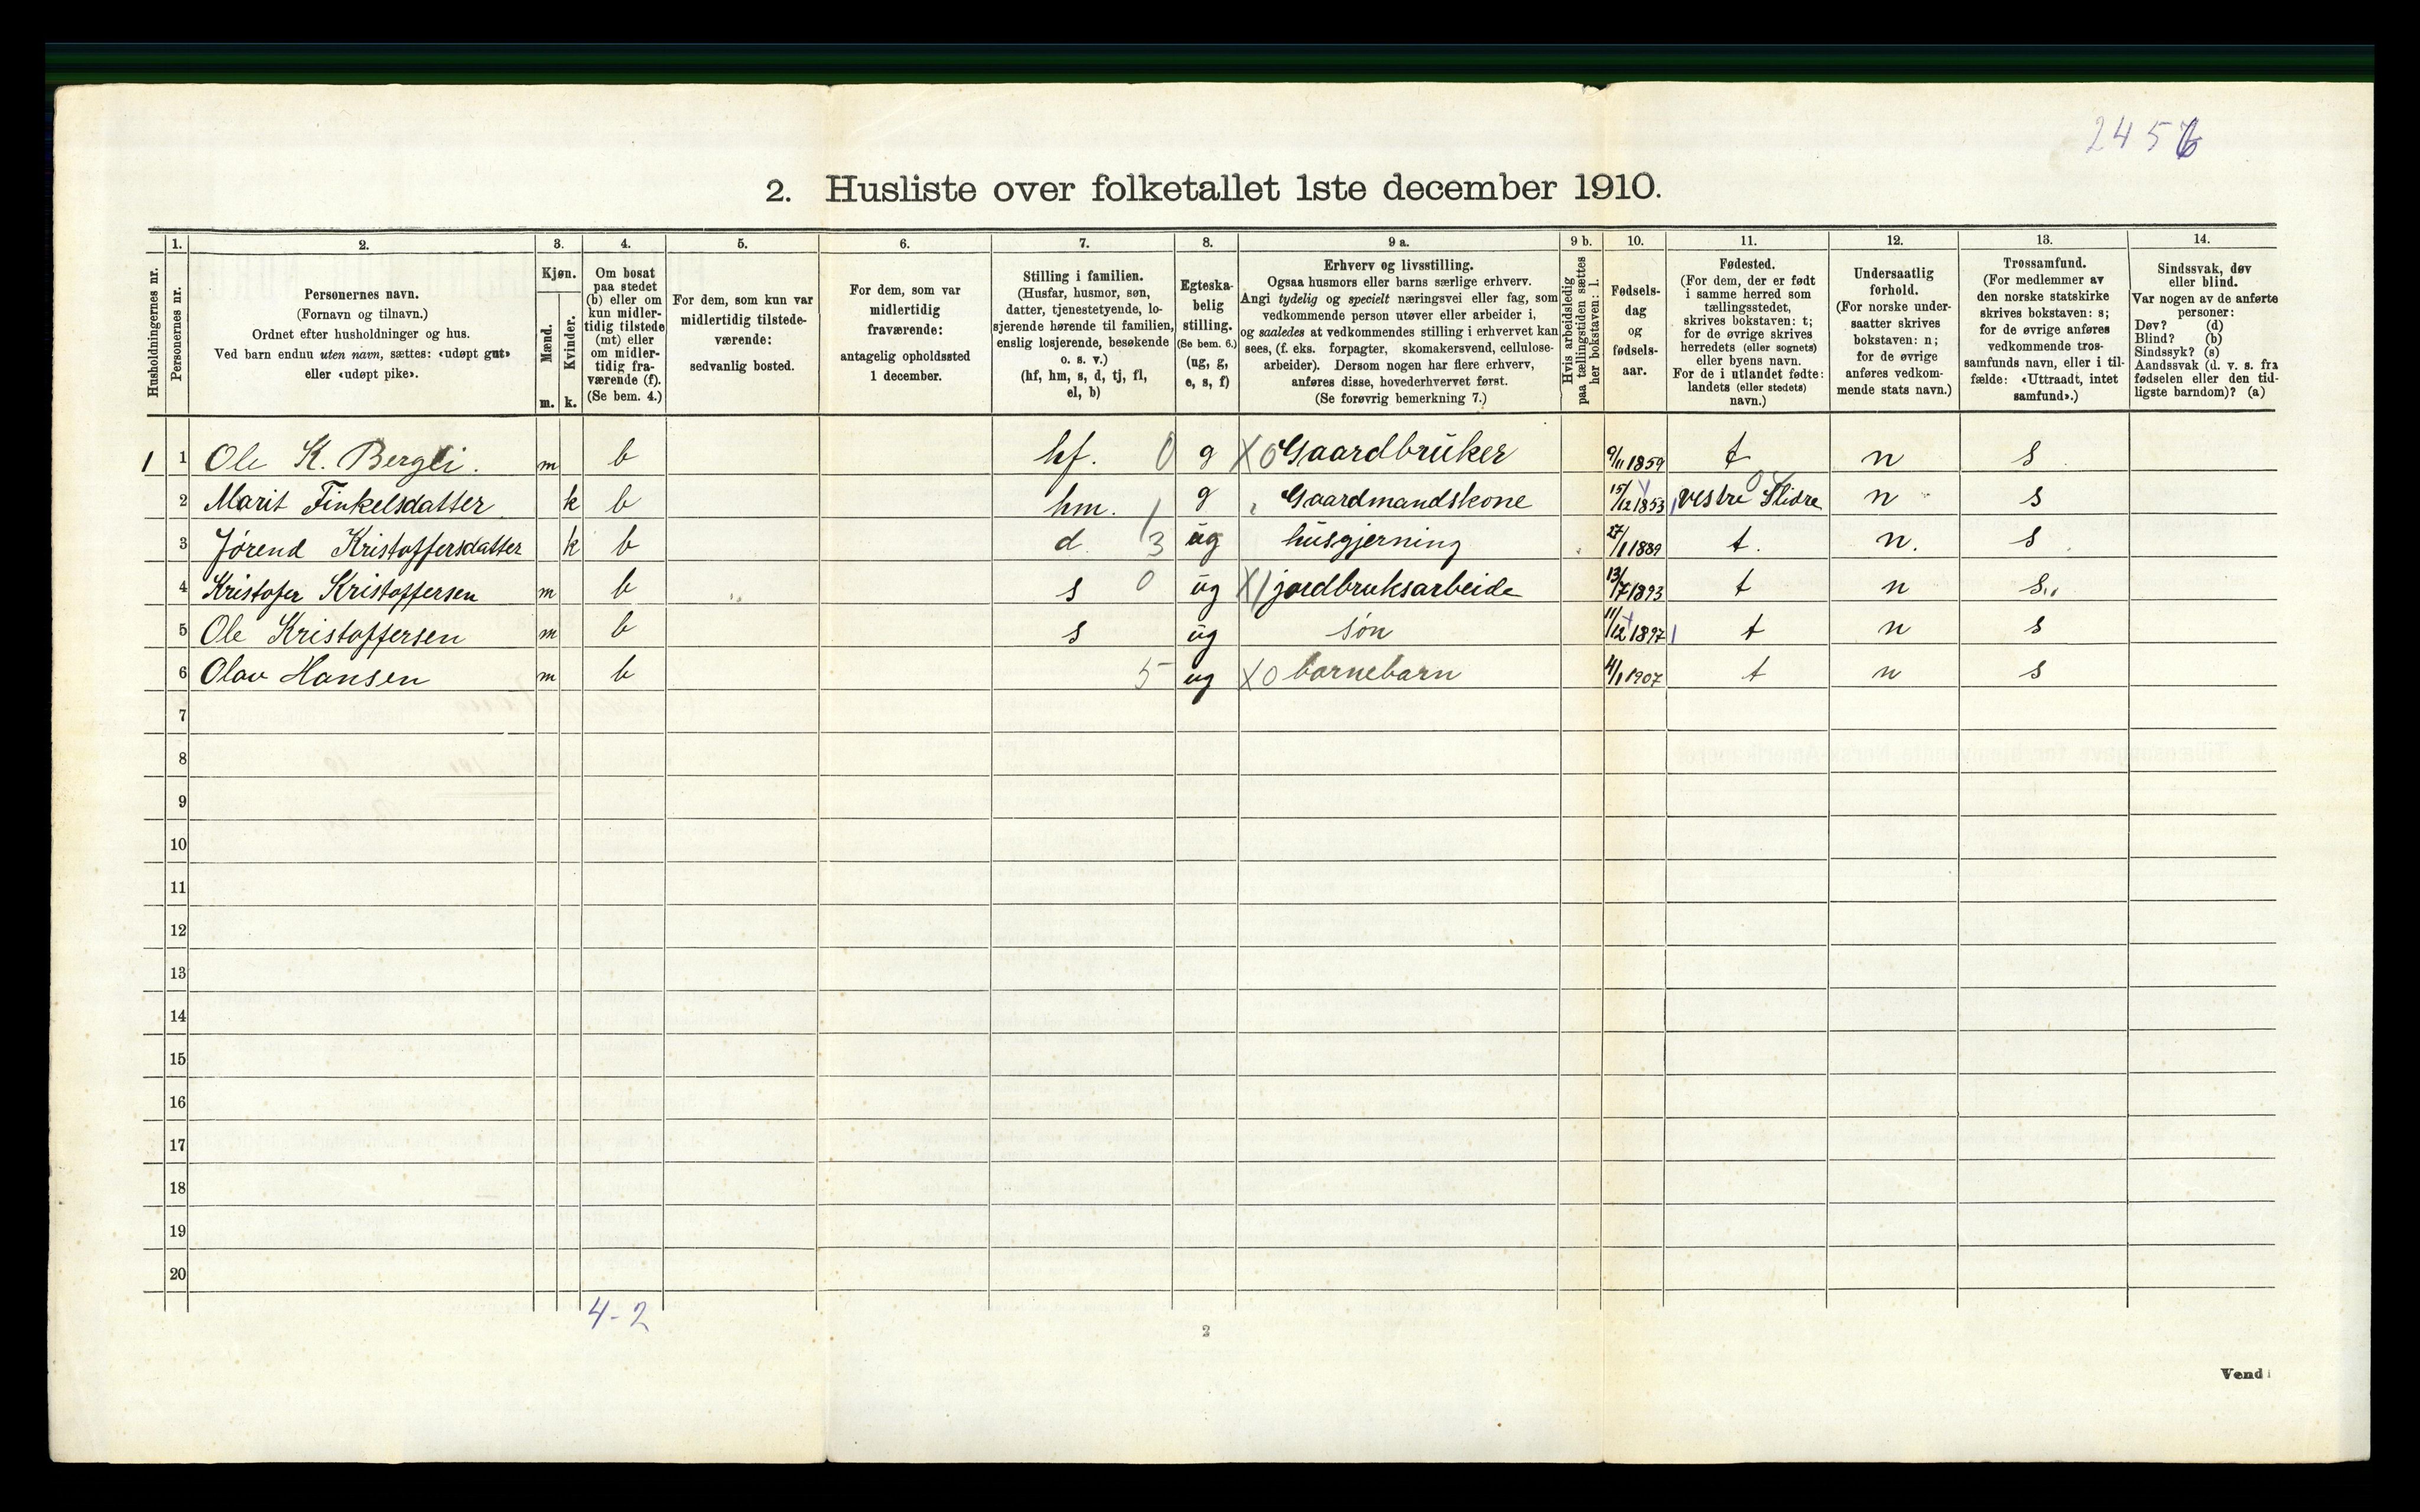 2456
2. Husliste over folketallet 1ste december 1910.
Husholdningernes nr.
1. Personernes nr.
2. Personernes navn.
(Fornavn og tilnavn.)
Ordnet efter husholdninger og hus.
Ved barn endnu uten navn, sættes: «udøpt gut»
eller «udøpt pike».
3. Kjøn.
Mænd. m.
Kvinder. k.
4. Om bosat
paa stedet
(b) eller om
kun midler-
tidig tilstede
(mt) eller
om midler-
tidig fra-
værende (f).
(Se bem. 4.)
5. For dem, som kun var
midlertidig tilstede-
værende:
sedvanlig bosted.
6. For dem, som var
midlertidig
fraværende:
antagelig opholdssted
1 december.
7. Stilling i familien.
(Husfar, husmor, søn,
datter, tjenestetyende, lo-
sjerende hørende til familien,
enslig losjerende, besøkende
o. s. v.)
(hf, hm, s, d, tj, fl,
el, b)
8. Egteska-
belig
stilling.
(Se bem. 6.)
(ug, g,
e, s, f)
9 a. Erhverv og livsstilling.
Ogsaa husmors eller barns særlige erhverv.
Angi tydelig og specielt næringsvei eller fag, som
vedkommende person utøver eller arbeider i,
og saaledes at vedkommendes stilling i erhvervet kan
sees, (f. eks. forpagter, skomakersvend, cellulose-
arbeider). Dersom nogen har flere erhverv,
anføres disse, hovederhvervet først.
(Se forøvrig bemerkning 7.)
9 b. Hvis arbeidsledig
paa tællingstiden sættes
her bokstaven: l.
10. Fødsels-
dag
og
fødsels-
aar.
11. Fødested.
(For dem, der er født
i samme herred som
tællingsstedet,
skrives bokstaven: t;
for de øvrige skrives
herredets (eller sognets)
eller byens navn.
For de i utlandet fødte:
landets (eller stedets)
navn.)
12. Undersaatlig
forhold.
(For norske under-
saatter skrives
bokstaven: n;
for de øvrige
anføres vedkom-
mende stats navn.)
13. Trossamfund.
(For medlemmer av
den norske statskirke
skrives bokstaven: s;
for de øvrige anføres
vedkommende tros-
samfunds navn, eller i til-
fælde: «Uttraadt, intet
samfund».)
14. Sindssvak, døv
eller blind.
Var nogen av de anførte
personer:
Døv? (d)
Blind? (b)
Sindssyk? (s)
Aandssvak (d. v. s. fra
fødselen eller den tid-
ligste barndom)? (a)
1 1 Ole K. Bergli. m b hf. 0 g X0 Gaardbruker 9/11 1859 t n s
2 Marit Finkelsdatter k b hm. 1 g Gaardmandskone 15/12 1853 vestre Slidre n s
3 Jørend Kristoffersdatter k b d. 3 ug husgjerning 27/1 1889 t. n. s
4 Kristofer Kristoffersen m b s 0 ug X1 jordbruksarbeide 13/7 1893 t n s
5 Ole Kristoffersen m b s ug søn 11/12 1897 t n s
6 Olav Hansen m b 5 ug X0 barnebarn 4/1 1907 t n s
7
8
9
10
11
12
13
14
15
16
17
18
19
20
4-2
2
Vend